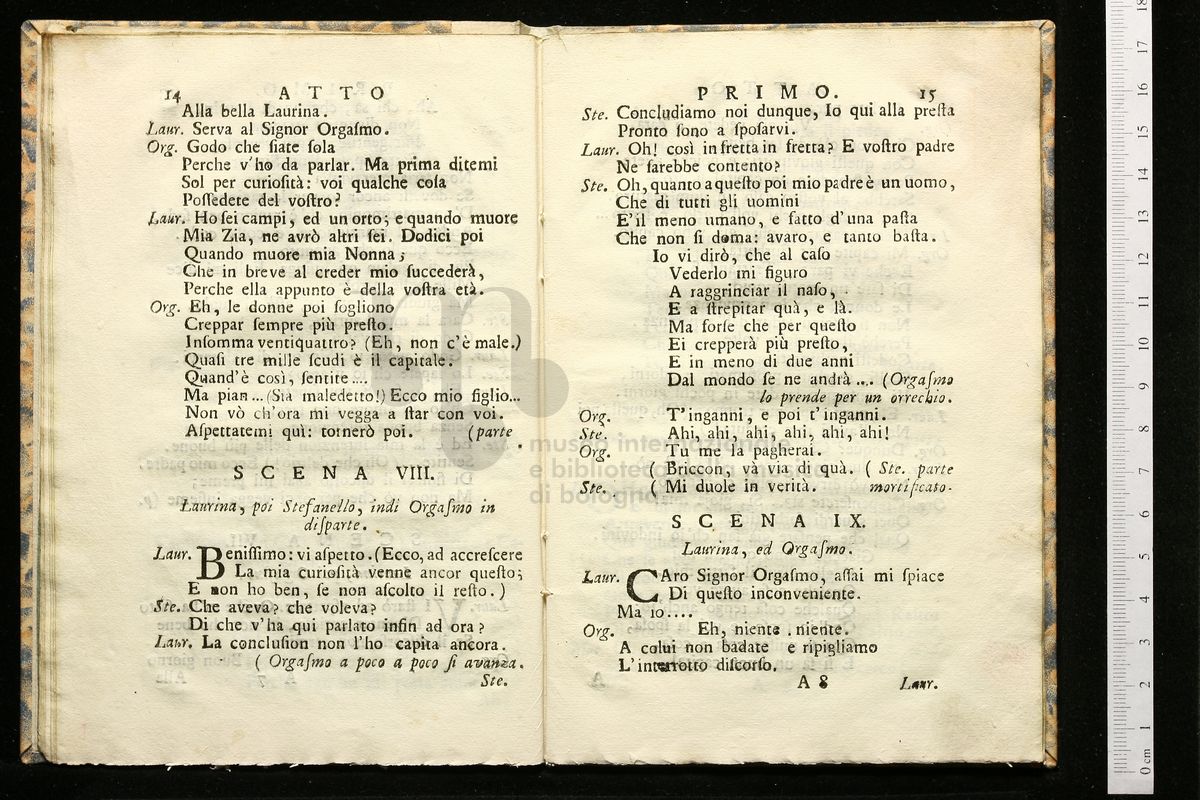 14 ATTO
Alla bella Laurina.
Laur. Serva al Signor Orgaſmo.
Org. Godo che ſiate ſola
Perche v'ho da parlar. Ma prima ditemi
Sol per curioſità: voi qualche coſa
Poſſedete del voſtro?
Laur. Ho ſei campi, ed un orto; e quando muore
Mia Zia, ne avrò altri ſei. Dodici poi
Quando muore mia Nonna;
Che in breve al creder mio ſuccederà,
Perche ella appunto è della voſtra età.
Org. Eh, le donne poi ſogliono
Creppar ſempre più preſto.
Inſomma ventiquattro? (Eh, non c'è male.)
Quaſi tre mille ſcudi è il capitale.
Quand'è così, ſentite....
Ma pian... (Sia maledetto!) Ecco mio figlio...
Non vò ch'ora mi vegga a ſtar con voi.
Aſpettatemi quì: tornerò poi. (parte.
SCENA VIII.
Laurina, poi Stefanello, indi Orgaſmo in
diſparte.
Laur. Beniſſimo: vi aſpetto. (Ecco, ad accreſcere
La mia curioſità venne ancor queſto;
E non ho ben, ſe non aſcolto il reſto.)
Ste. Che aveva? che voleva?
Di che v'ha qui parlato infin ad ora?
Laur. La concluſion non l'ho capita ancora.
( Orgaſmo a poco a poco ſi avanza.
Ste.
PRIMO. 15
Ste. Concludiamo noi dunque, Io qui alla preſta
Pronto ſono a ſpoſarvi.
Laur. Oh! così in fretta in fretta? E voſtro padre
Ne ſarebbe contento?
Ste. Oh, quanto a queſto poi mio padre è un uomo,
Che di tutti gli uomini
E'il meno umano, e fatto d'una paſta
Che non ſi doma: avaro, e tanto baſta.
Io vi dirò, che al caſo
Vederlo mi figuro
A raggrinciar il naſo,
E a ſtrepitar quà, e là.
Ma forſe che per queſto
Ei crepperà più preſto,
E in meno di due anni
Dal mondo ſe ne andrà.... (Orgaſmo
lo prende per un orrechio.
Org. T'inganni, e poi t'inganni.
Ste. Ahi, ahi, ahi, ahi, ahi, ahi!
Org. Tu me la pagherai.
( Briccon, và via di quà. ( Ste. parte
Ste. ( Mi duole in verità. mortificato.
SCENA IX.
Laurina, ed Orgaſmo.
Laur. CAro Signor Orgaſmo, aſſai mi ſpiace
Di queſto inconveniente.
Ma io....
Org. Eh, niente. niente.
A colui non badate e ripigliamo
L'interrotto diſcorſo.
A 8 Laur.
museo internazionale
e biblioteca della musica
di bologna
0 cm 1 2 3 4 5 6 7 8 9 10 11 12 13 14 15 16 17 18